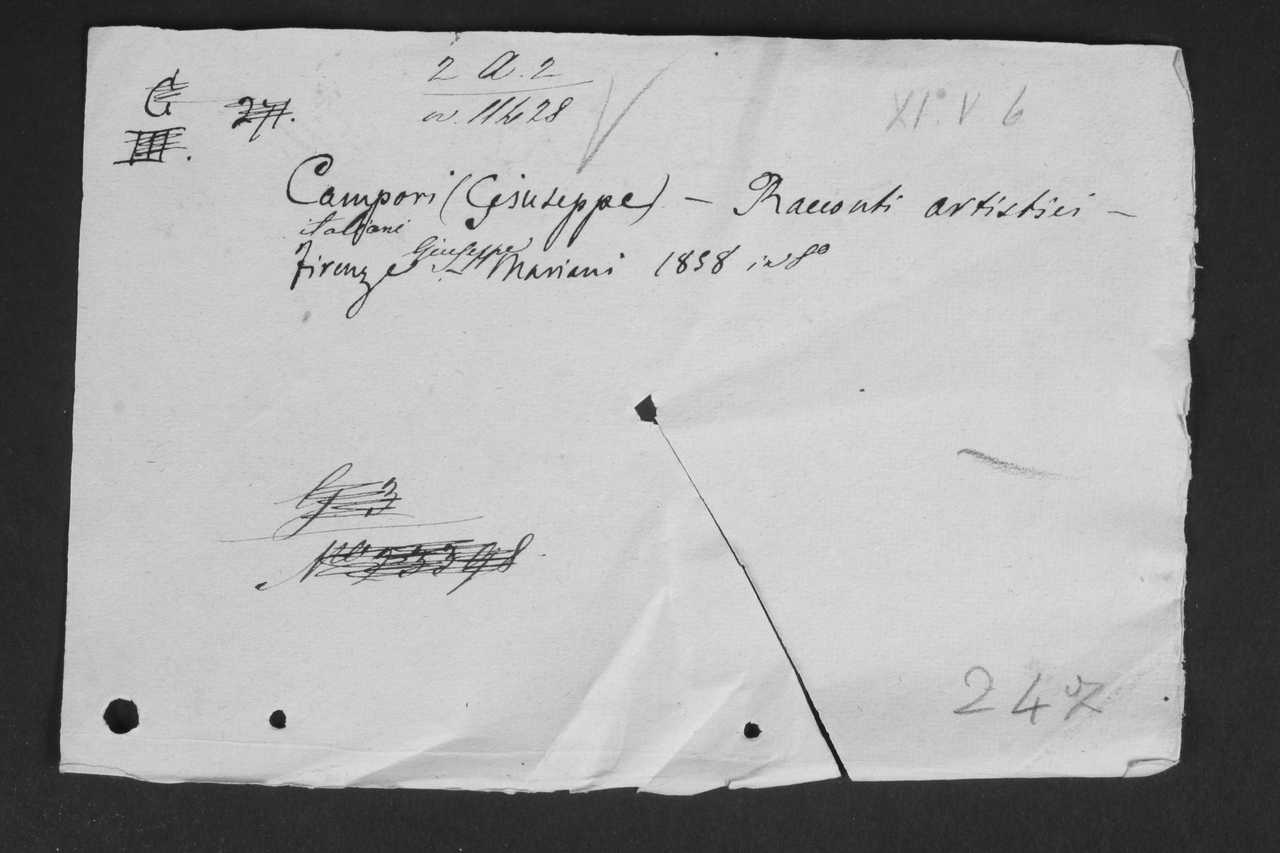 2 A. 2
G 27.
III.
n. 11628
XI. V 6
Campori (Giuseppe) – Racconti artistici –
italiani
Firenze Giuseppe Mariani 1858 in 8°
G 3
No 33398
247